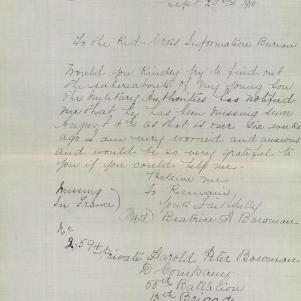 Sept 29th 191
To the Red-Cross Information Bureau
Would you kindly try to find out
the whereabouts of my young son
the Military Authorities has notified
me that he has been missing since
August 10th as that is over six weeks
ago I am very worried and anxious
and would be so very grateful to
you if you could help me.
Believe me
To Remain
Yours Faithfully
(Mrs) Beatrice A Bowman
Missing
In France
No
2,594
Private Harold Peter Bowman
D Company
Battalion
Brigade